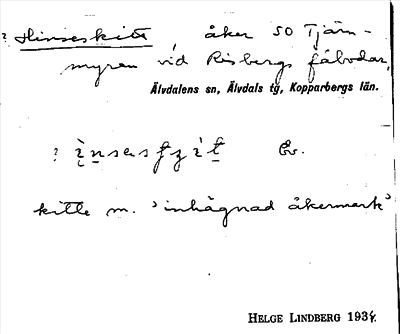 ? Hinseskitte, åker SO Tjärn-
myren vid Risbergs fäbodar,
Älvdalens sn, Älvdals tg, Kopparbergs län.
? Ev.
kitte m. 'inhägnad åkermark'
HELGE LINDBERG 1934.